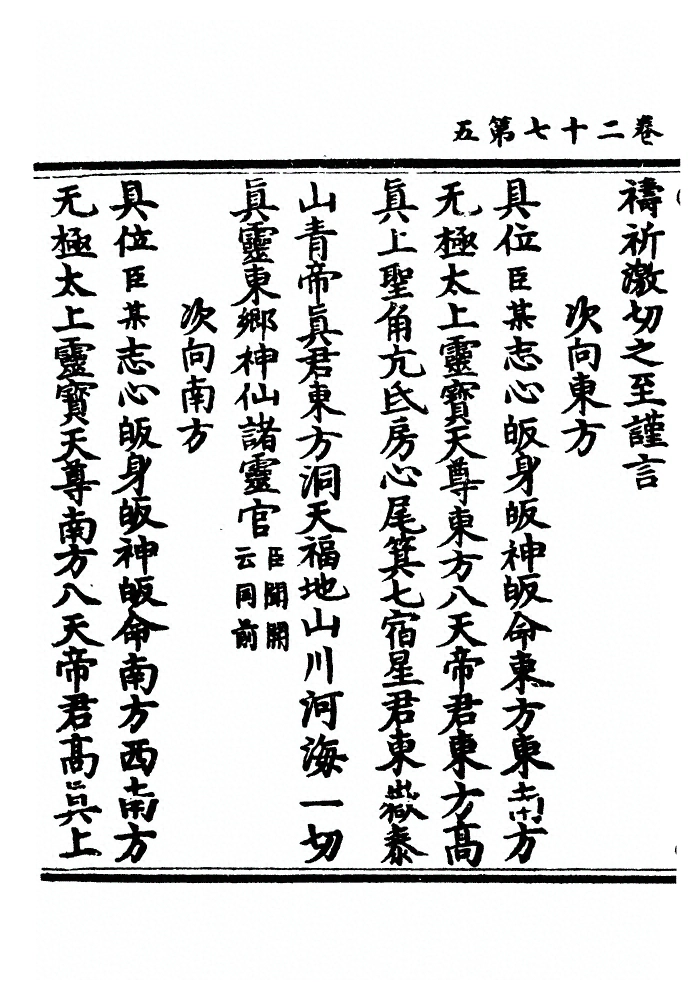 卷二十七第五
禱祈激切之至謹言
次向東方
具位臣某志心皈身皈神皈命東方東南方
无極太上靈寶天尊東方八天帝君東方高
眞上聖角亢氐房心尾箕七宿星君東嶽泰
山青帝眞君東方洞天福地山川河海一切
眞靈東鄉神仙諸靈官臣聞開
云同前
次向南方
具位臣某志心皈身皈神皈命南方西南方
无極太上靈寶天尊南方八天帝君高眞上